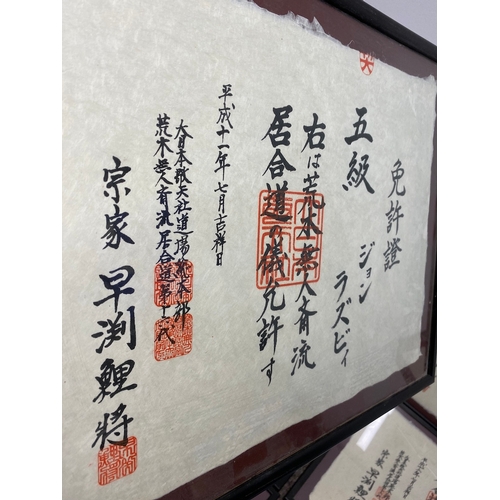 免許證
五級
ジョン
ラズビィ
右は荒木無人斉流
居合道の儀免許す
平成十一年七月吉祥日
大日本敬天社道場総本部
荒木無人斉流居合道第十六代
宗家 早渕鯉將
宗家 早渕鯉將